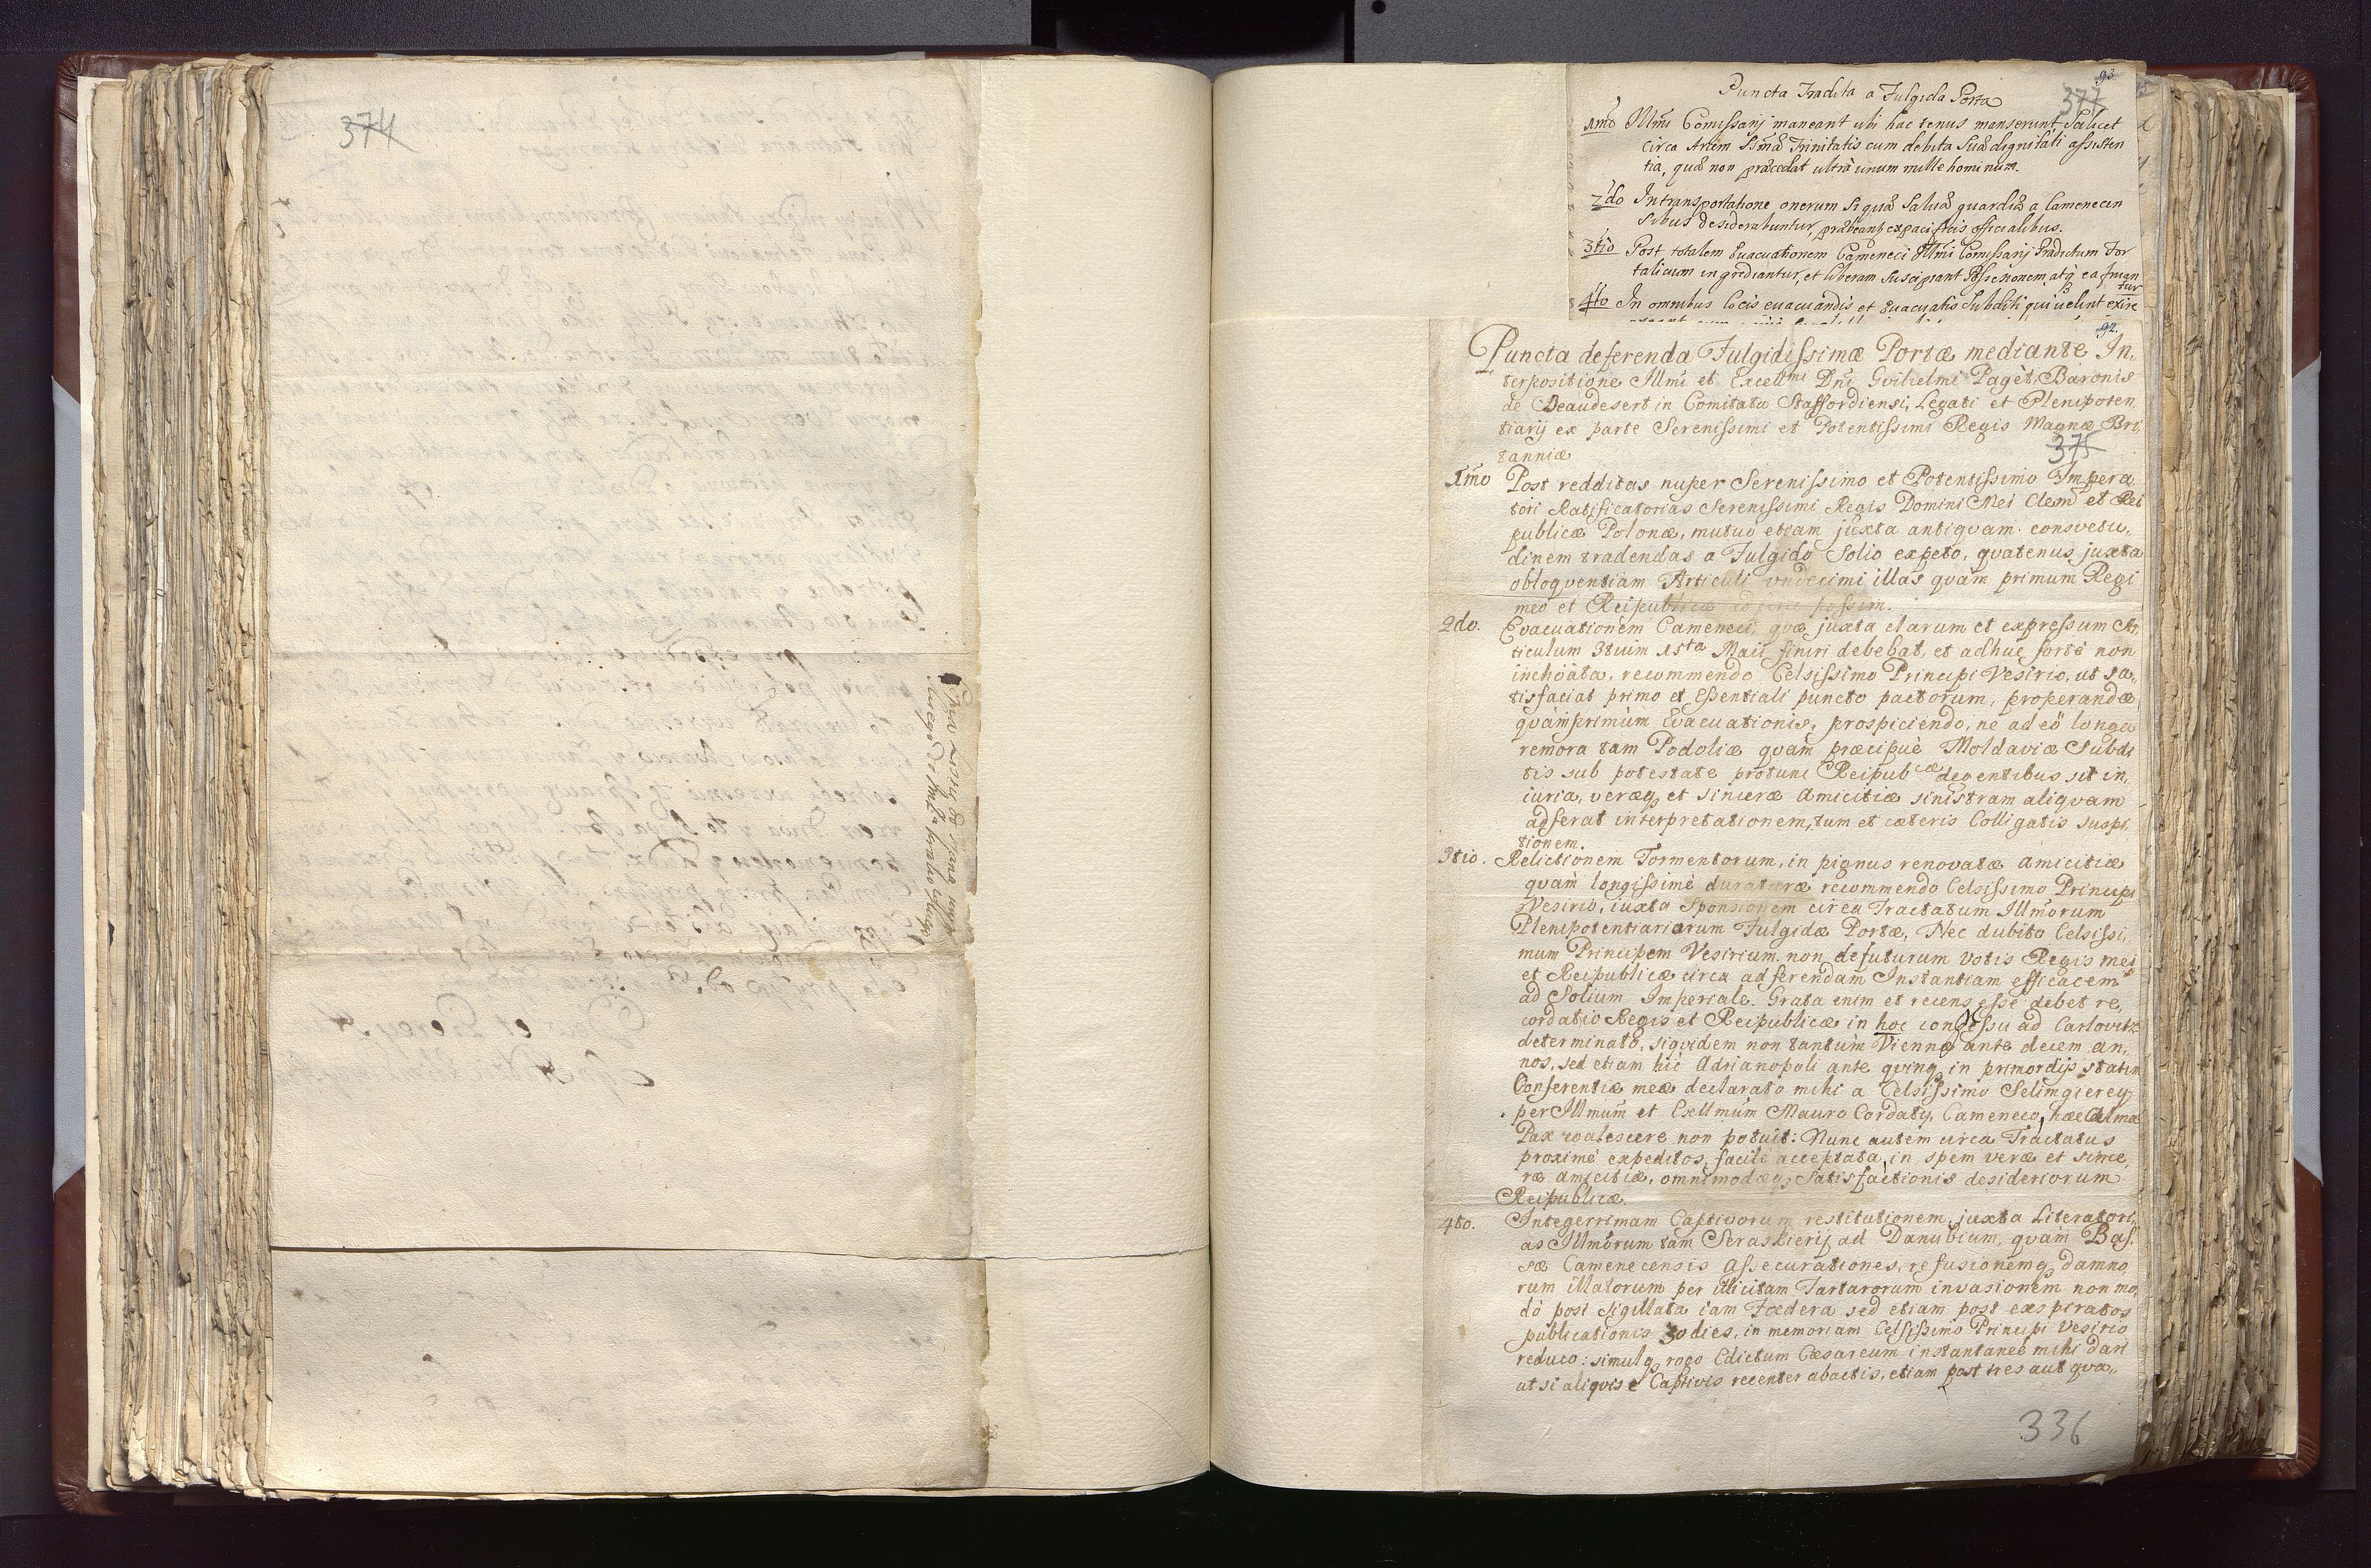 374
93.
377
Puncta Tradita a Fulgida Porta
1mo Illmi Comissarij maneant ubi hac tenus manserunt, scilicet
circa Arcem SSmæ Trinitatis cum debita suæ dignitati assisten
tia, quæ non præcedat ultra unum mille hominum.
2do In transportatione onerum si quæ salvæ guardiæ a Camenecen
sibus desiderabuntur, præbeant ex pacificis officialibus.
3tio Post totalem Evacuationem Cameneci Illmi Comissarij prædictum For
talicium ingrediantur, et liberam suscipiant Possessionem, atq ea fruan
tur
4to In omnibus locis evacuandis et evacuatis Subditi qui velint exire
92.
Puncta deferenda Fulgidissimæ Portæ mediante In,
terpositione Illmi et Excellmi Dni Gvilielmi Paget, Baronis
de Beaudesert in Comitatu Staffordiensi, Legati et Plenipoten,
tiarij ex parte Serenissimi et Potentissimi Regis Magnæ Bri,
tanniæ
375
1mo Post redditas nuper Serenissimo et Potentissimo Impera
tori Ratificatorias Serenissimi Regis Domini Mei Clem et Rei
publicæ Polonæ, mutuo etiam juxta antiquam consvetu,
dinem tradendas a Fulgido Solio expeto, qvatenus juxta
obloqventiam Articuli vndecimi illas qvàm primum Regi
meo et Reipublicæ possim.
2do. Evacuationem Cameneci, qvæ juxta clarum et expressum Ar,
ticulum 3tium 15ta Maii finiri debebat, et adhuc fortè non
inchöata, recommendo Celsissimo Principi Vesirio, ut sa,
tisfaciat primo et Essentiali puncto pactorum, properandæ
qvàmprimùm Evacuationis, prospiciendo, ne ad eö longa
remora tam Podoliæ qvàm præcipuè Moldaviæ Subdi
tis sub potestate protunc Reipubcæ degentibus sit in,
iuria, veræq et sinceræ Amicitiæ sinistram aliqvam
adferat interpretationem, tum et cæteris Colligatis suspi,
tionem.
3tio. Relictionem Tormentorum, in pignus renovatæ Amicitiæ
qvàm longissimè duraturæ recommendo Celsissimo Principi
Vesirio, iuxta Sponsionem circa Tractatum Illmorum
Plenipotentiariarum Fulgidæ Portæ, Nec dubito Celsissi,
mum Principem Vesirium non defuturum votis Regis mei
et Reipublicæ circa adferendam Instantiam efficacem
ad Solium Imperiale. Grata enim et recens esse debet re,
cordatio Regis et Reipublicæ in hoc congressu ad Carlovitz
determinato, siqvidem non tantùm Viennæ ante decem an,
nos, sed etiam hìc Adrianopoli ante qvinq in primordijs statim
Conferentiæ meæ declarato mihi a Celsissimo Selimgierey
per Illmum et Exellmum Mauro Cordaty, Cameneco, hæc Alma
Pax coalescere non potuit: Nunc autem circa Tractatus
proximè expeditos, facilè acceptata, in spem veræ et since,
ræ amicitiæ, omnimodæq satisfactionis desideriorum
Reipublicæ.
4to. Integerrimam Captivorum restitutionem, juxta Literatori,
as Illmorum tam Seraskierij ad Danubium, qvàm Bas,
sæ Camenecensis Assecurationes, refusionemq damno
rum illatorum per illicitam Tartarorum invasionem non mo,
dò post sigillata iam Fœdera sed etiam post exspiratos
publicationis 30 dies, in memoriam Celsissimo Principi Vesirio
reduco: simulq rogo Edictum Cæsareum instantaneè mihi dari
ut si aliqvis è Captivis recenter abactis, etiam post tres aut qva,,
336